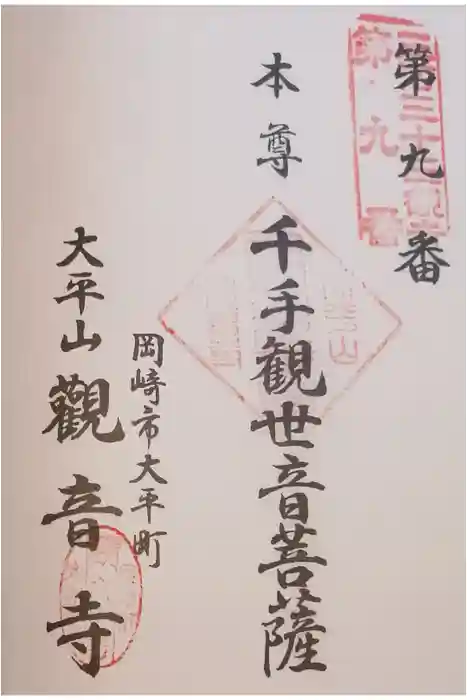 第九番
第九番
本尊
千手観世音菩薩
岡崎市大平町
大平山觀音寺